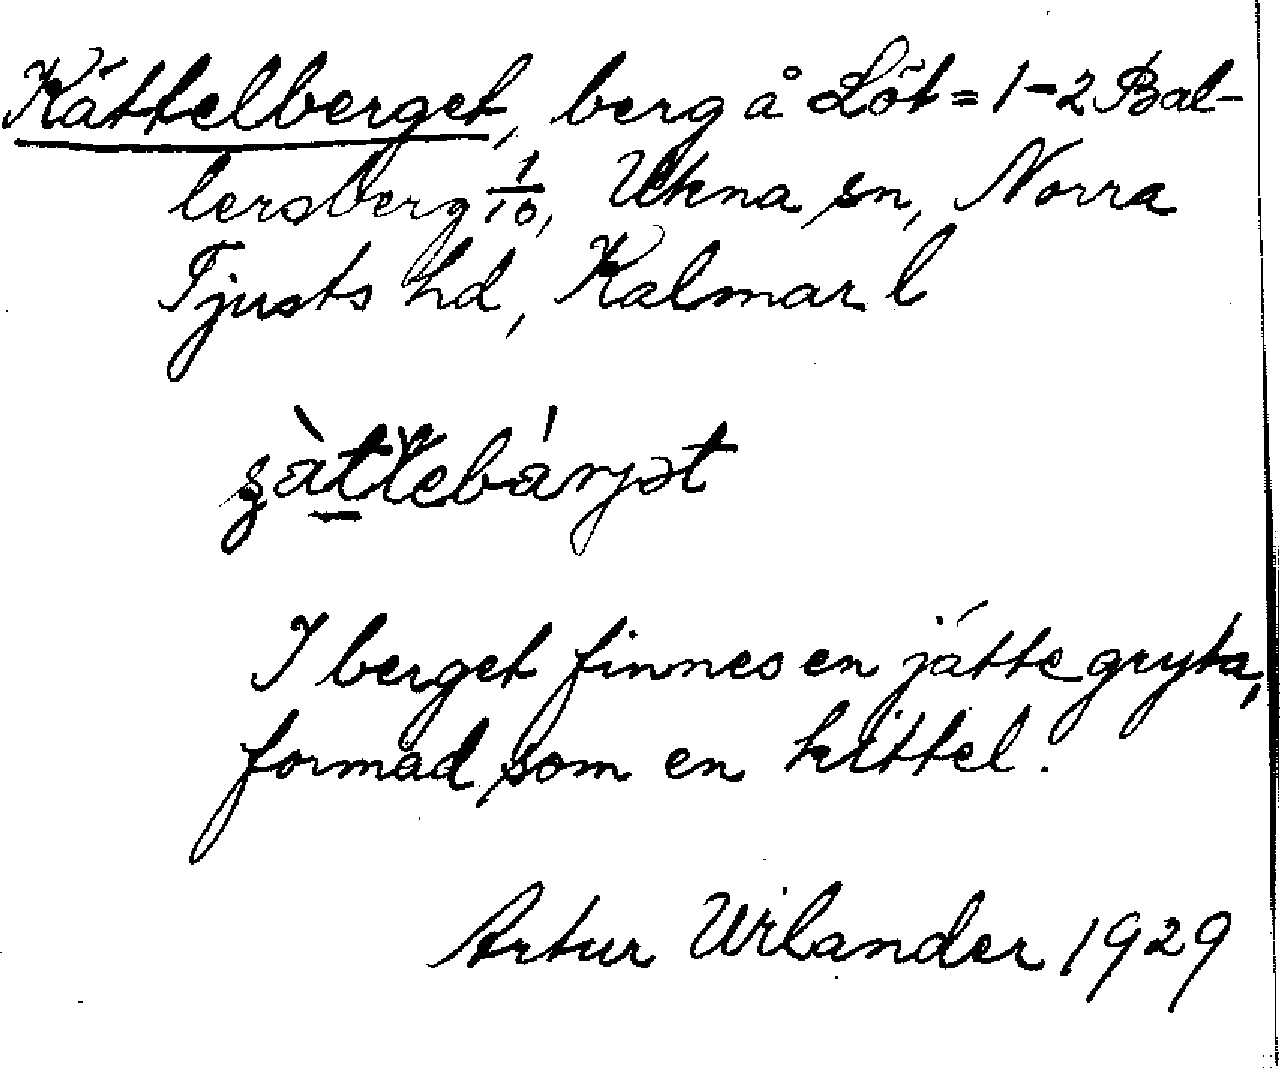 Kättelberget, berg å Löt = 1-2 Bal-
lersberg 1/16, Ukna sn, Norra
Tjusts hd, Kalmar l
I berget finnes en jättegryta,
formad som en kittel.
Artur Wilander 1929